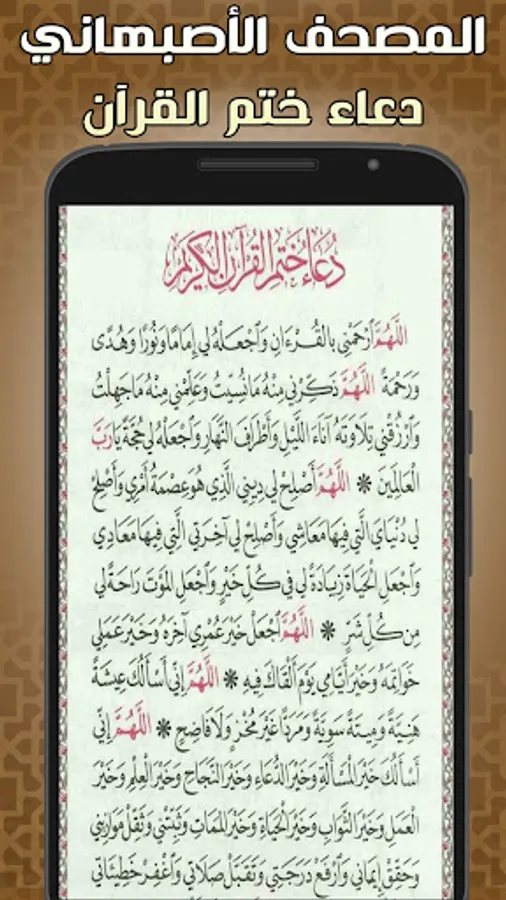 المصحف الأصبهاني
دعاء ختم القرآن
دُعَاءُ خَتْمِ الْقُرْآنِ الْكَرِيمِ
اللَّهُمَّ ٱرْحَمْنِي بِالْقُرْءَانِ وَٱجْعَلْهُ لِي إِمَامًا وَنُورًا وَهُدًى
وَرَحْمَةً اللَّهُمَّ ذَكِّرْنِي مِنْهُ مَا نُسِّيتُ وَعَلِّمْنِي مِنْهُ مَا جَهِلْتُ
وَٱرْزُقْنِي تِلَاوَتَهُ آنَاءَ اللَّيْلِ وَأَطْرَافَ النَّهَارِ وَٱجْعَلْهُ لِي حُجَّةً يَا رَبَّ
الْعَالَمِينَ * اللَّهُمَّ أَصْلِحْ لِي دِينِي الَّذِي هُوَ عِصْمَةُ أَمْرِي وَأَصْلِحْ
لِي دُنْيَايَ الَّتِي فِيهَا مَعَاشِي وَأَصْلِحْ لِي آخِرَتِي الَّتِي فِيهَا مَعَادِي
وَٱجْعَلِ الْحَيَاةَ زِيَادَةً لِي فِي كُلِّ خَيْرٍ وَٱجْعَلِ الْمَوْتَ رَاحَةً لِي
مِن كُلِّ شَرٍّ * اللَّهُمَّ ٱجْعَلْ خَيْرَ عُمْرِي آخِرَهُ وَخَيْرَ عَمَلِي
خَوَاتِمَهُ وَخَيْرَ أَيَّامِي يَوْمَ أَلْقَاكَ فِيهِ * اللَّهُمَّ إِنِّي أَسْأَلُكَ عِيشَةً
هَنِيَّةً وَمِيتَةً سَوِيَّةً وَمَرَدًّا غَيْرَ مُخْزٍ وَلَا فَاضِحٍ * اللَّهُمَّ إِنِّي
أَسْأَلُكَ خَيْرَ الْمَسْأَلَةِ وَخَيْرَ الدُّعَاءِ وَخَيْرَ النَّجَاحِ وَخَيْرَ الْعِلْمِ وَخَيْرَ
الْعَمَلِ وَخَيْرَ الثَّوَابِ وَخَيْرَ الْحَيَاةِ وَخَيْرَ الْمَمَاتِ وَثَبِّتْنِي وَثَقِّلْ مَوَازِينِي
وَحَقِّقْ إِيمَانِي وَٱرْفَعْ دَرَجَتِي وَتَقَبَّلْ صَلَاتِي وَٱغْفِرْ خَطِيئَاتِي